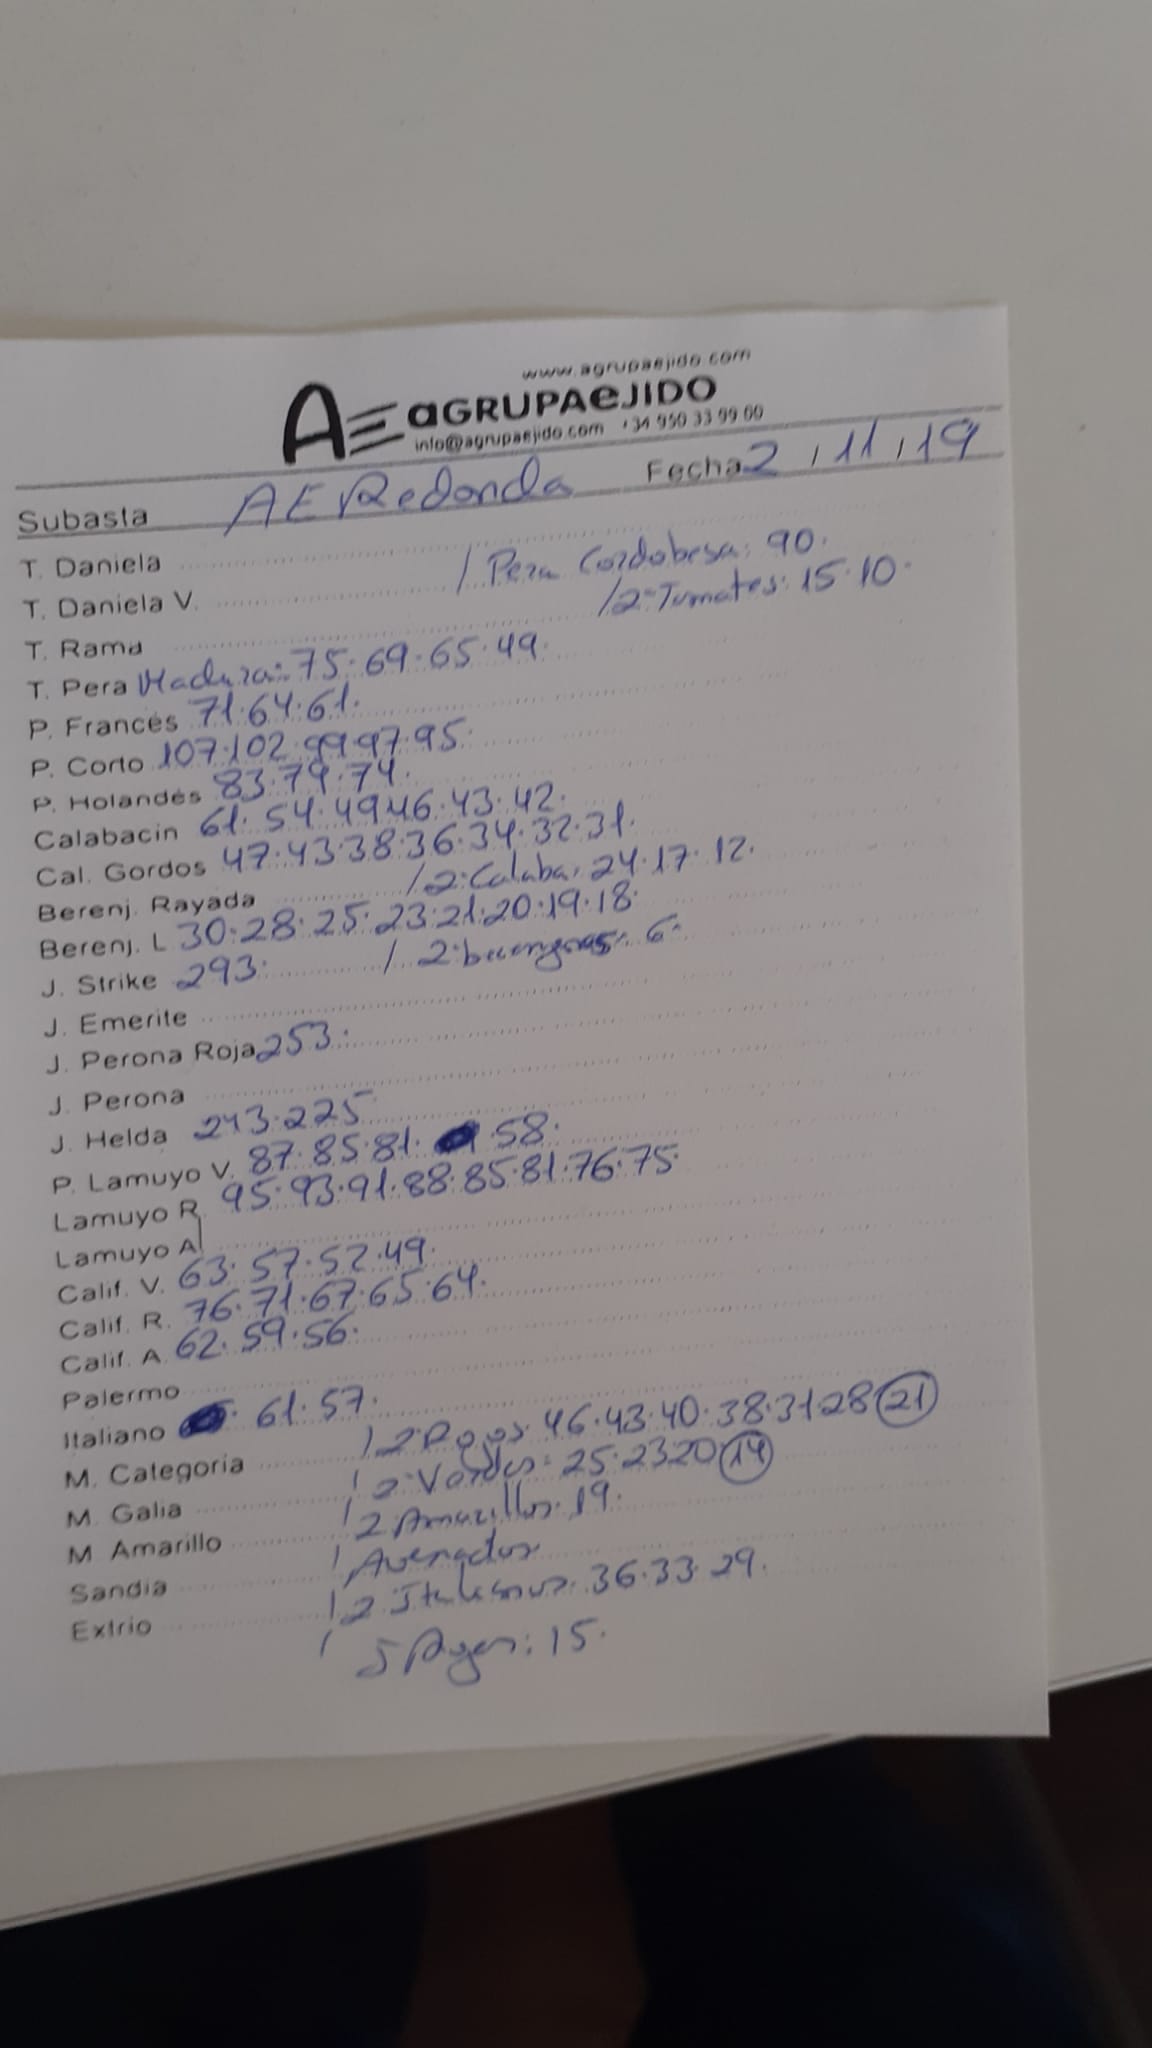 www.agrupaejido.com
AE aGRUPAeJIDO
info@agrupaejido.com +34 950 33 99 00
Subasta AE Redonda Fecha 2 / 11 / 19
T. Daniela
/ Pera Cordobesa: 90.
T. Daniela V.
/ 2ª Tomates: 15.10.
T. Rama
T. Pera Madura: 75.69.65.49.
P. Francés 71.64.61.
P. Corto 107.102.99.97.95.
P. Holandés 83.79.74.
Calabacin 61.54.49.46.43.42.
Cal. Gordos 47.43.38.36.34.32.31.
Berenj. Rayada / 2ª Calaba: 24.17.12.
Berenj. L 30.28.25.23.21.20.19.18.
J. Strike 293. / 2ª 6.
J. Emerite
J. Perona Roja 253.
J. Perona
J. Helda 243.225
P. Lamuyo V. 87.85.81. .58.
Lamuyo R. 95.93.91.88.85.81.76.75.
Lamuyo A
Calif. V. 63.57.52.49.
Calif. R. 76.71.67.65.64.
Calif. A. 62.59.56.
Palermo
Italiano 61.57.
M. Categoria / 2ª Rojos 46.43.40.38.31.28 21
M. Galia / 2ª Verdes: 25.23.20 14
M. Amarillo / 2 Amarillos. 19.
Sandia /
Extrio / 2 36.33.29.
/ 15.